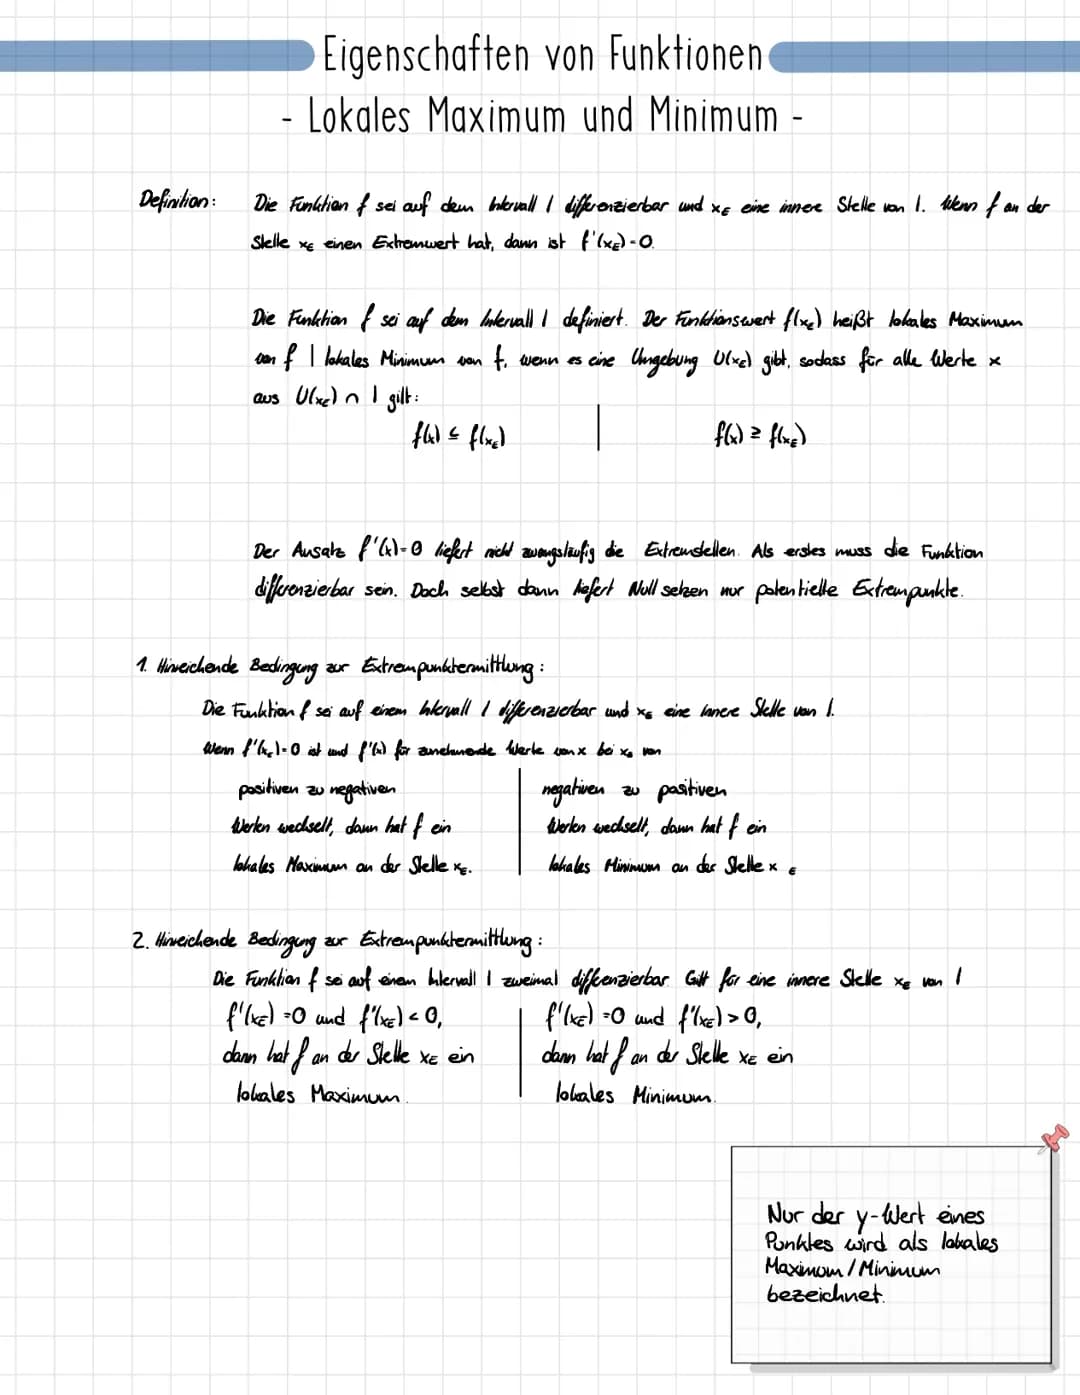 Eigenschaften von Funktionen
- Lokales Maximum und Minimum -
Definition: Die Funktion f sei auf dem Intervall I differenzierbar und xE eine innere Stelle von I. Wenn f an der
Stelle xE einen Extremwert hat, dann ist f'(xE)=0.
Die Funktion f sei auf dem Intervall I definiert. Der Funktionswert f(xE) heißt lokales Maximum
von f | lokales Minimum von f, wenn es eine Umgebung U(xE) gibt, sodass für alle Werte x
aus U(xE) ∩ I gilt:
f(x) ≤ f(xE) | f(x) ≥ f(xE)
Der Ansatz f'(x)=0 liefert nicht zwangsläufig die Extremstellen. Als erstes muss die Funktion
differenzierbar sein. Doch selbst dann liefert Null setzen nur potentielle Extrempunkte.
1. Hinreichende Bedingung zur Extrempunktermittlung:
Die Funktion f sei auf einem Intervall I differenzierbar und xE eine innere Stelle von I.
Wenn f'(xE)=0 ist und f'(x) für zunehmende Werte von x bei xE von
positiven zu negativen
Werten wechselt, dann hat f ein
lokales Maximum an der Stelle xE.
negativen zu positiven
Werten wechselt, dann hat f ein
lokales Minimum an der Stelle xE
2. Hinreichende Bedingung zur Extrempunktermittlung:
Die Funktion f sei auf einem Intervall I zweimal differenzierbar. Gilt für eine innere Stelle xE von I
f'(xE)=0 und f"(xE)<0,
dann hat f an der Stelle xE ein
lokales Maximum.
f'(xE)=0 und f"(xE)>0,
dann hat f an der Stelle xE ein
lokales Minimum.
Nur der y-Wert eines
Punktes wird als lokales
Maximum/Minimum
bezeichnet.